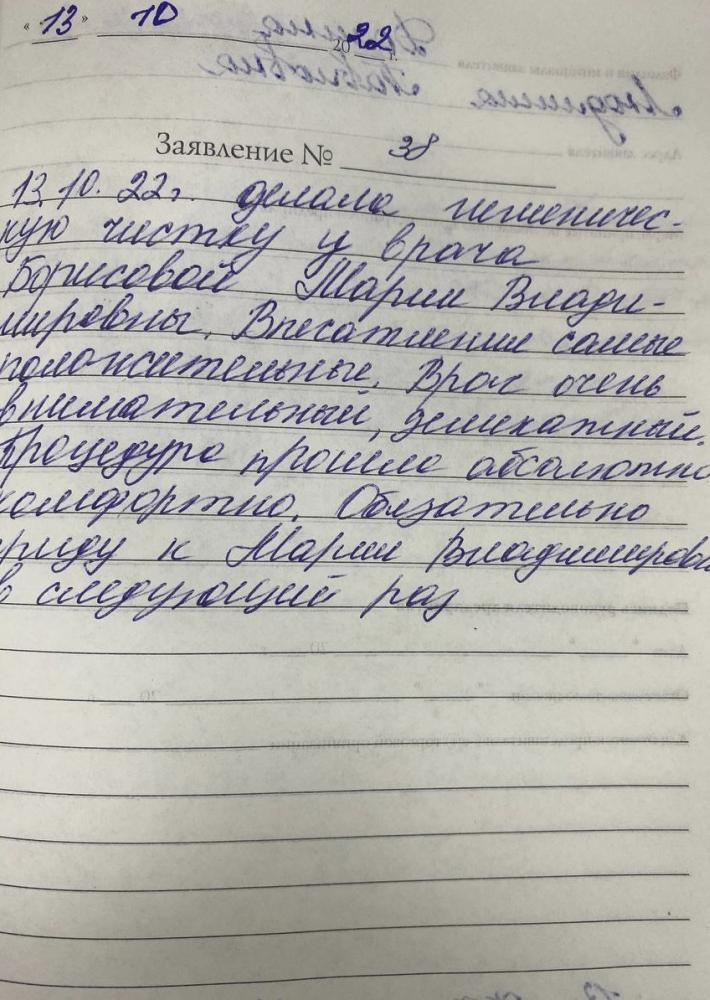 « 13 » 10 2022 г.
Заявление № 38
13.10.22г. делала гигиеничес-
кую чистку у врача
Борисовой Марии Влади-
мировны. Впечатления самые
положительные. Врач очень
внимательный, деликатный.
Процедура прошла абсолютно
комфортно. Обязательно
приду к Марии Владимировне
в следующий раз